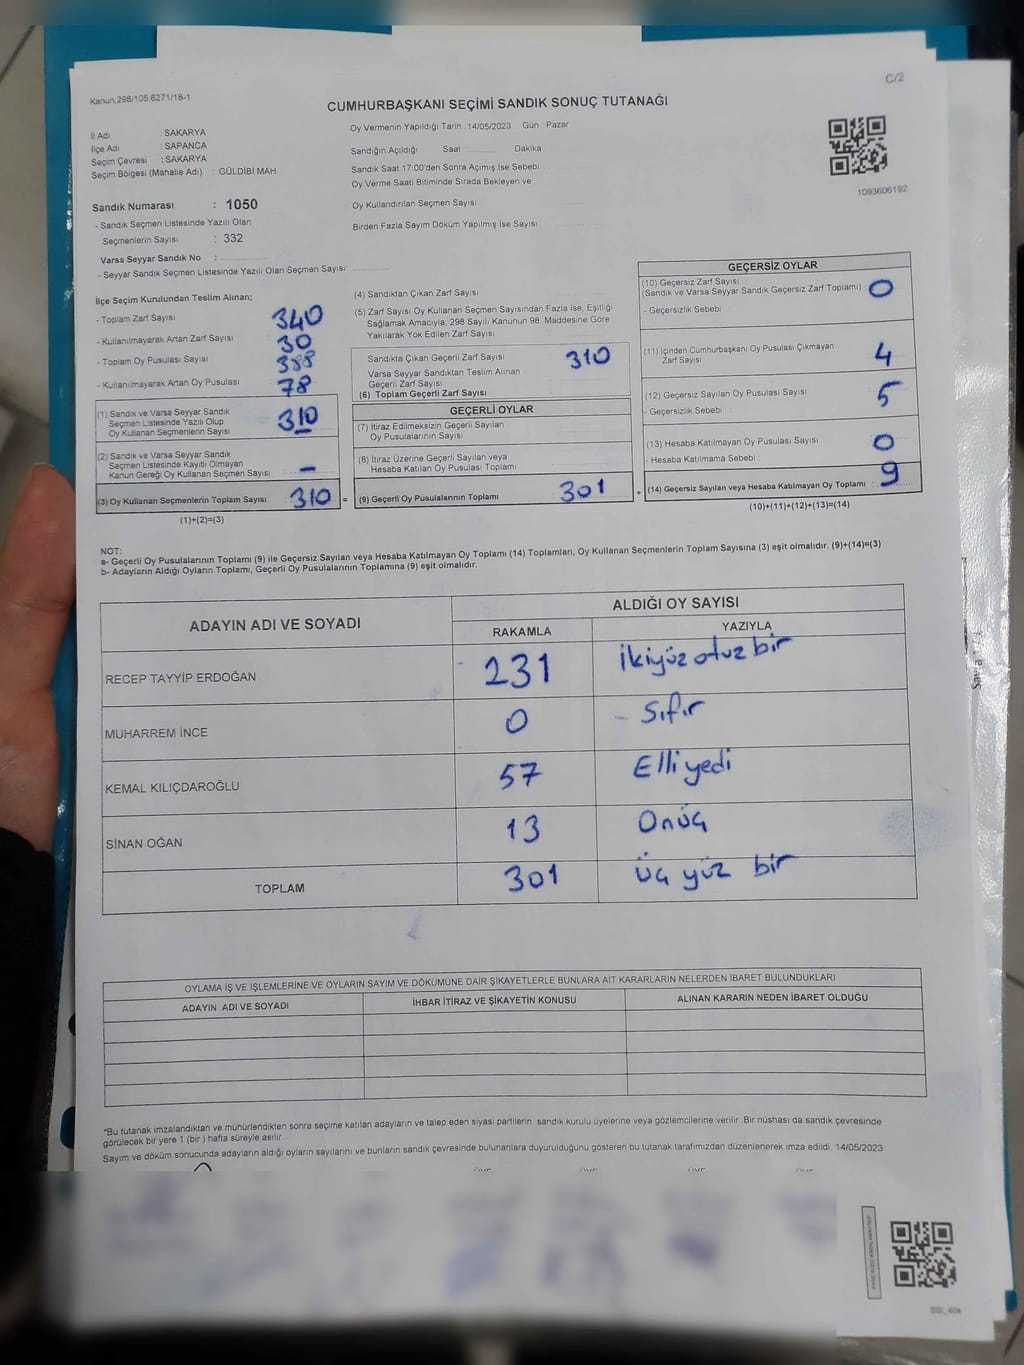 C/2
Kanun,298/105;6271/18-1
CUMHURBAŞKANI SEÇİMİ SANDIK SONUÇ TUTANAĞI
İl Adı : SAKARYA
İlçe Adı : SAPANCA
Seçim Çevresi : SAKARYA
Seçim Bölgesi (Mahalle Adı) : GÜLDİBİ MAH.
Oy Vermenin Yapıldığı Tarih : 14/05/2023 Gün : Pazar
Sandığın Açıldığı Saat Dakika
Sandık Saat 17:00'den Sonra Açımış İse Sebebi
Oy Verme Saati Bitiminde Sırada Bekleyen ve
Oy Kullandırılan Seçmen Sayısı
Birden Fazla Sayım Döküm Yapılmış İse Sayısı
1093606192
Sandık Numarası : 1050
- Sandık Seçmen Listesinde Yazılı Olan
Seçmenlerin Sayısı : 332
Varsa Seyyar Sandık No :
- Seyyar Sandık Seçmen Listesinde Yazılı Olan Seçmen Sayısı:
İlçe Seçim Kurulundan Teslim Alınan;
- Toplam Zarf Sayısı 340
- Kullanılmayarak Artan Zarf Sayısı 30
- Toplam Oy Pusulası Sayısı 388
- Kullanılmayarak Artan Oy Pusulası 78
(1) Sandık ve Varsa Seyyar Sandık
Seçmen Listesinde Yazılı Olup
Oy Kullanan Seçmenlerin Sayısı 310
(2) Sandık ve Varsa Seyyar Sandık
Seçmen Listesinde Kayıtlı Olmayan
Kanun Gereği Oy Kullanan Seçmen Sayısı -
(3) Oy Kullanan Seçmenlerin Toplam Sayısı 310 =
(1)+(2)=(3)
(4) Sandıktan Çıkan Zarf Sayısı
(5) Zarf Sayısı Oy Kullanan Seçmen Sayısından Fazla İse, Eşitliği
Sağlamak Amacıyla, 298 Sayılı Kanunun 98. Maddesine Göre
Yakılarak Yok Edilen Zarf Sayısı
Sandıkta Çıkan Geçerli Zarf Sayısı 310
Varsa Seyyar Sandıktan Teslim Alınan
Geçerli Zarf Sayısı
(6) Toplam Geçerli Zarf Sayısı
GEÇERLİ OYLAR
(7) İtiraz Edilmeksizin Geçerli Sayılan
Oy Pusulalarının Sayısı
(8) İtiraz Üzerine Geçerli Sayılan veya
Hesaba Katılan Oy Pusulası Toplamı
(9) Geçerli Oy Pusulalarının Toplamı 301 +
GEÇERSİZ OYLAR
(10) Geçersiz Zarf Sayısı
(Sandık ve Varsa Seyyar Sandık Geçersiz Zarf Toplamı) : 0
- Geçersizlik Sebebi
(11) İçinden Cumhurbaşkanı Oy Pusulası Çıkmayan
Zarf Sayısı 4
(12) Geçersiz Sayılan Oy Pusulası Sayısı 5
- Geçersizlik Sebebi :
(13) Hesaba Katılmayan Oy Pusulası Sayısı 0
- Hesaba Katılmama Sebebi :
(14) Geçersiz Sayılan veya Hesaba Katılmayan Oy Toplamı : 9
(10)+(11)+(12)+(13)=(14)
NOT:
a- Geçerli Oy Pusulalarının Toplamı (9) ile Geçersiz Sayılan veya Hesaba Katılmayan Oy Toplamı (14) Toplamları, Oy Kullanan Seçmenlerin Toplam Sayısına (3) eşit olmalıdır. (9)+(14)=(3)
b- Adayların Aldığı Oyların Toplamı, Geçerli Oy Pusulalarının Toplamına (9) eşit olmalıdır.
ADAYIN ADI VE SOYADI ALDIĞI OY SAYISI
RAKAMLA YAZIYLA
RECEP TAYYİP ERDOĞAN 231 ikiyüz otuz bir
MUHARREM İNCE 0 - Sıfır
KEMAL KILIÇDAROĞLU 57 Elli yedi
SİNAN OĞAN 13 Onüç
TOPLAM 301 üç yüz bir
OYLAMA İŞ VE İŞLEMLERİNE VE OYLARIN SAYIM VE DÖKÜMÜNE DAİR ŞİKAYETLERLE BUNLARA AİT KARARLARIN NELERDEN İBARET BULUNDUKLARI
ADAYIN ADI VE SOYADI İHBAR İTİRAZ VE ŞİKAYETİN KONUSU ALINAN KARARIN NEDEN İBARET OLDUĞU
*Bu tutanak imzalandıktan ve mühürlendikten sonra seçime katılan adayların ve talep eden siyasi partilerin sandık kurulu üyelerine veya gözlemcilerine verilir. Bir nüshası da sandık çevresinde
görülecek bir yere 1 (bir ) hafta süreyle asılır.
Sayım ve döküm sonucunda adayların aldığı oyların sayılarını ve bunların sandık çevresinde bulunanlara duyurulduğunu gösteren bu tutanak tarafımızdan düzenlenerek imza edildi. 14/05/2023